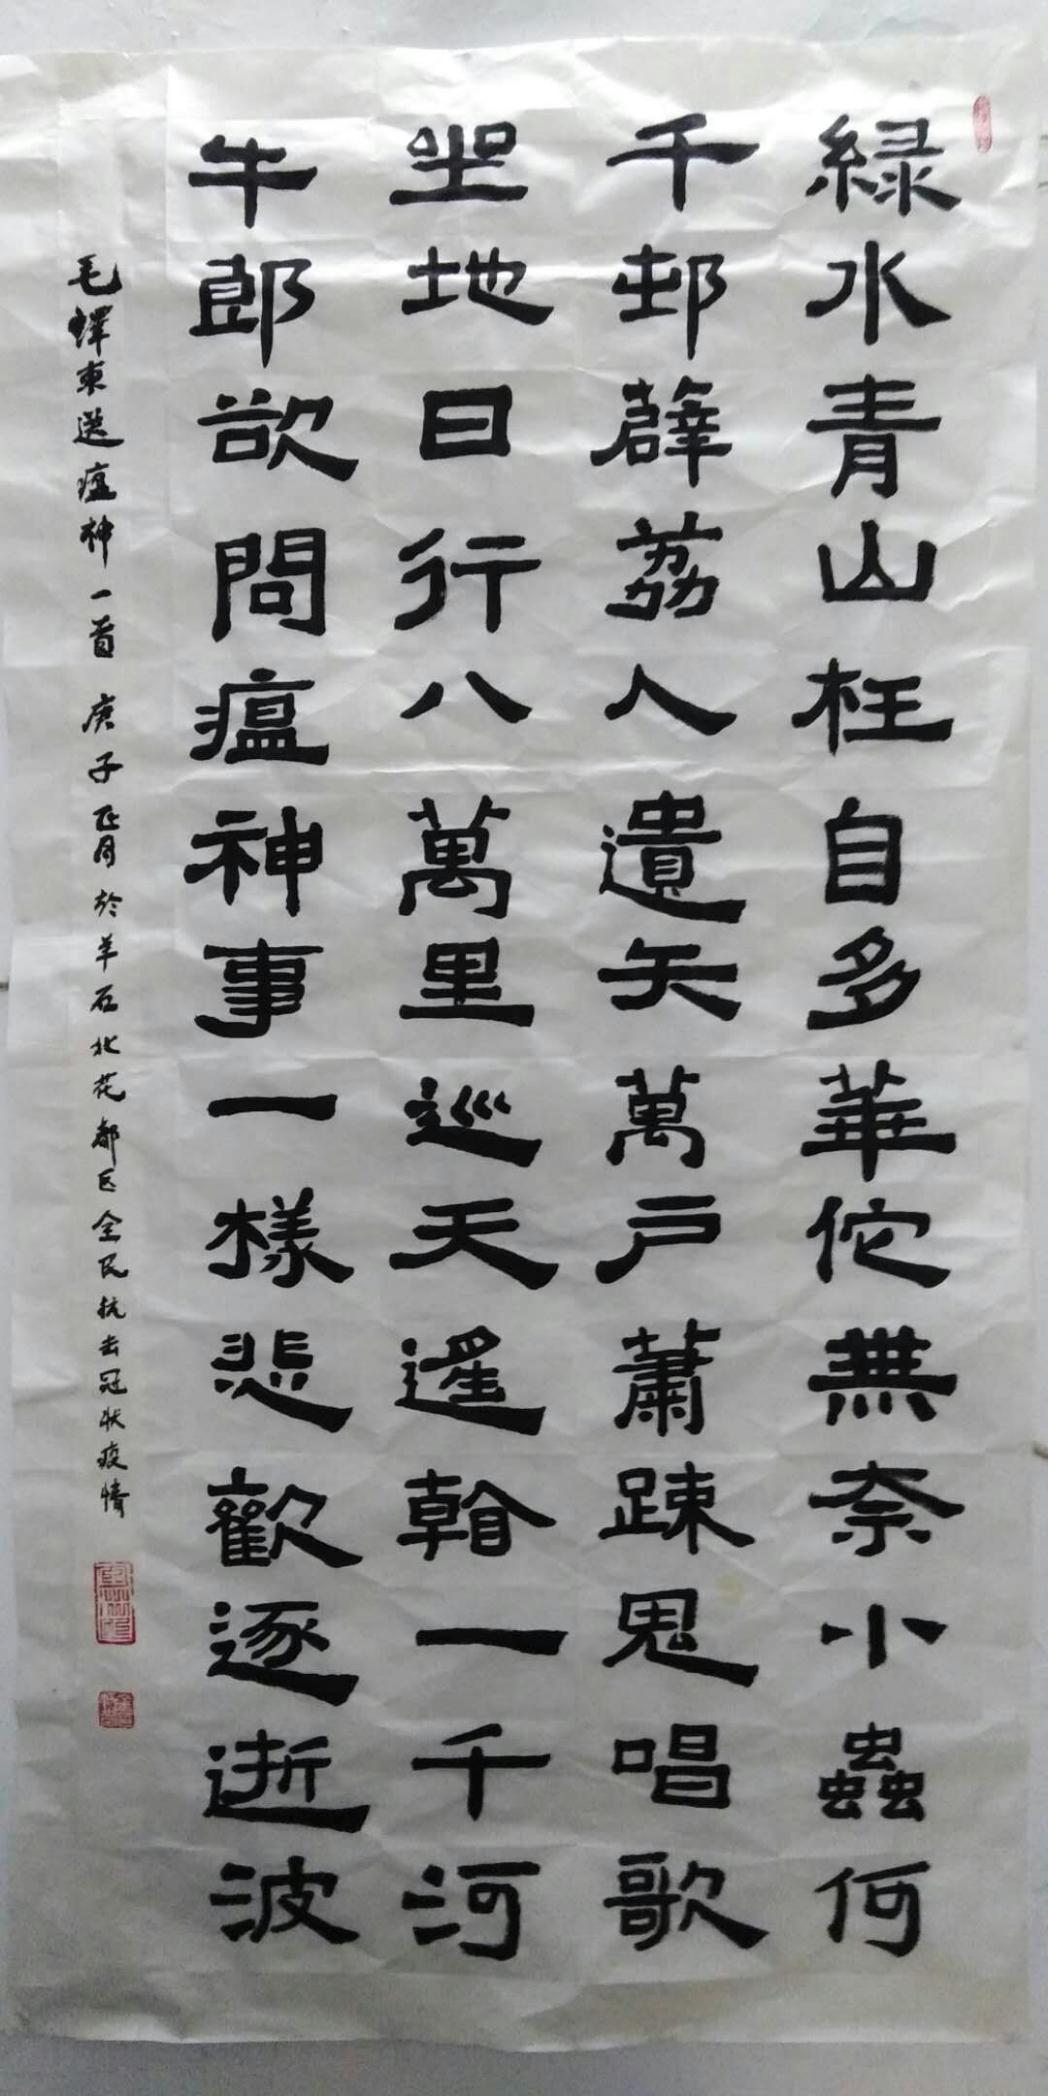 緑水青山枉自多華佗無奈小蟲何
千邨薜荔人遺矢萬戶蕭踈鬼唱歌
坐地日行八萬里巡天遙看一千河
牛郎欲問瘟神事一樣悲歡逐逝波
毛澤東送瘟神一首 庚子正月於羊石北花都区全民抗击冠状疫情